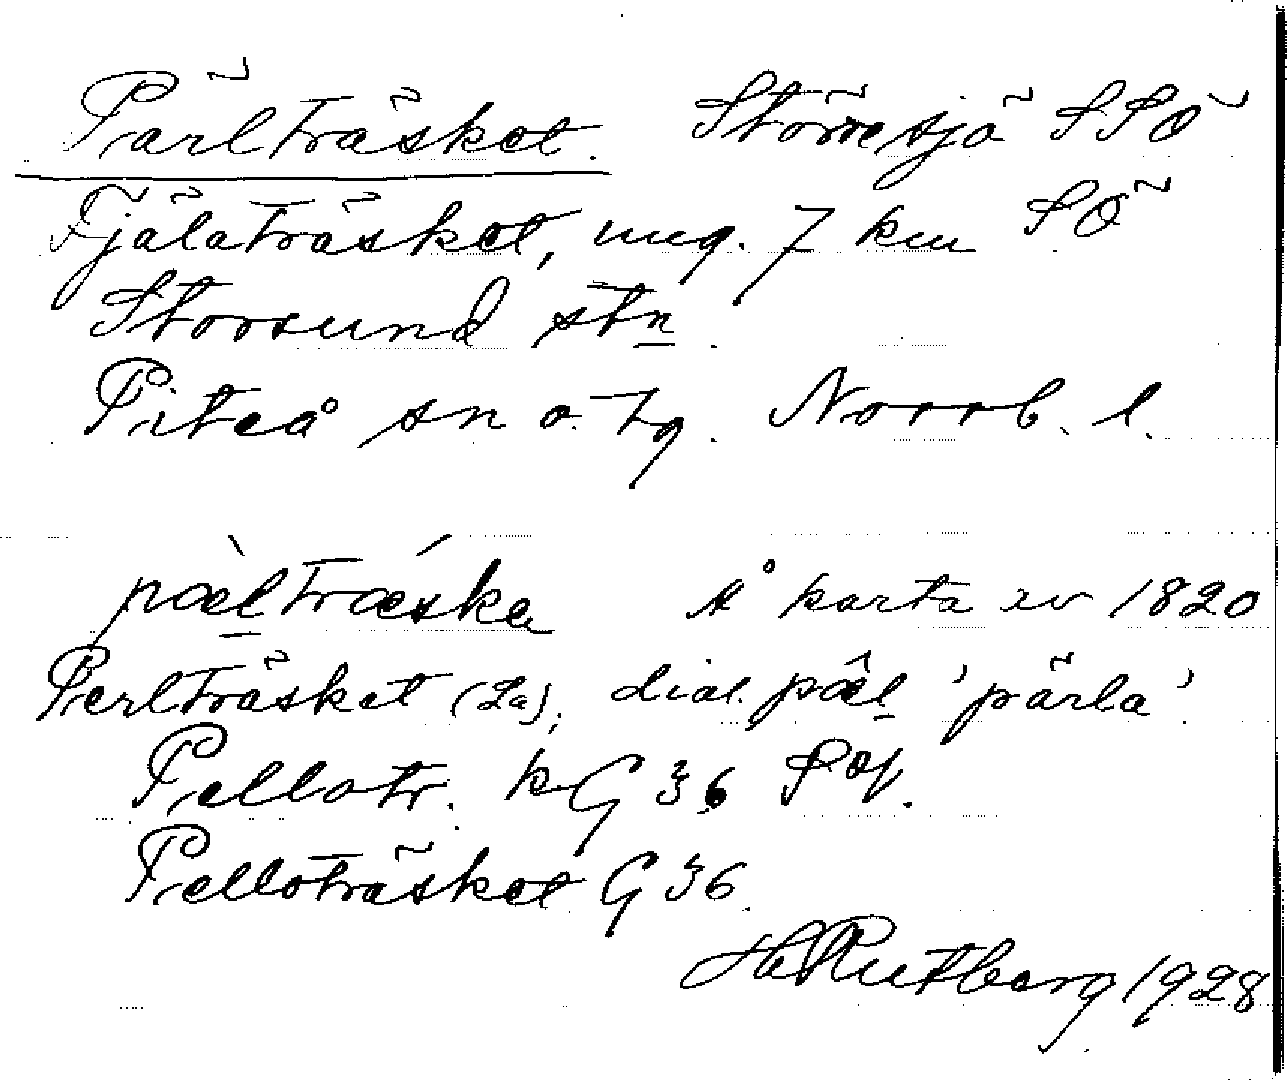 Pärlträsket. Större sjö SSÖ
Fjälaträsket, ung. 7 km SÖ
Storsund stn.
Piteå sn o. tg. Norrb. l.
pæ̀ltrǽska Å karta av 1820
Perlträsket (La); dial. pæ̂l 'pärla'.
Pellotr. kG 36 Söf.
Pelloträsket G 36.
HRutberg 1928